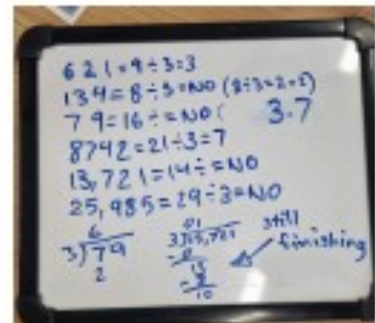 621=9÷3=3
134=8÷3=NO (8÷3=2+2)
79=16÷=NO(
3.7
8742=21÷3=7
13,721=14÷=NO
25,985=29÷3=NO
6
3)79
2
01
still
finishing
10